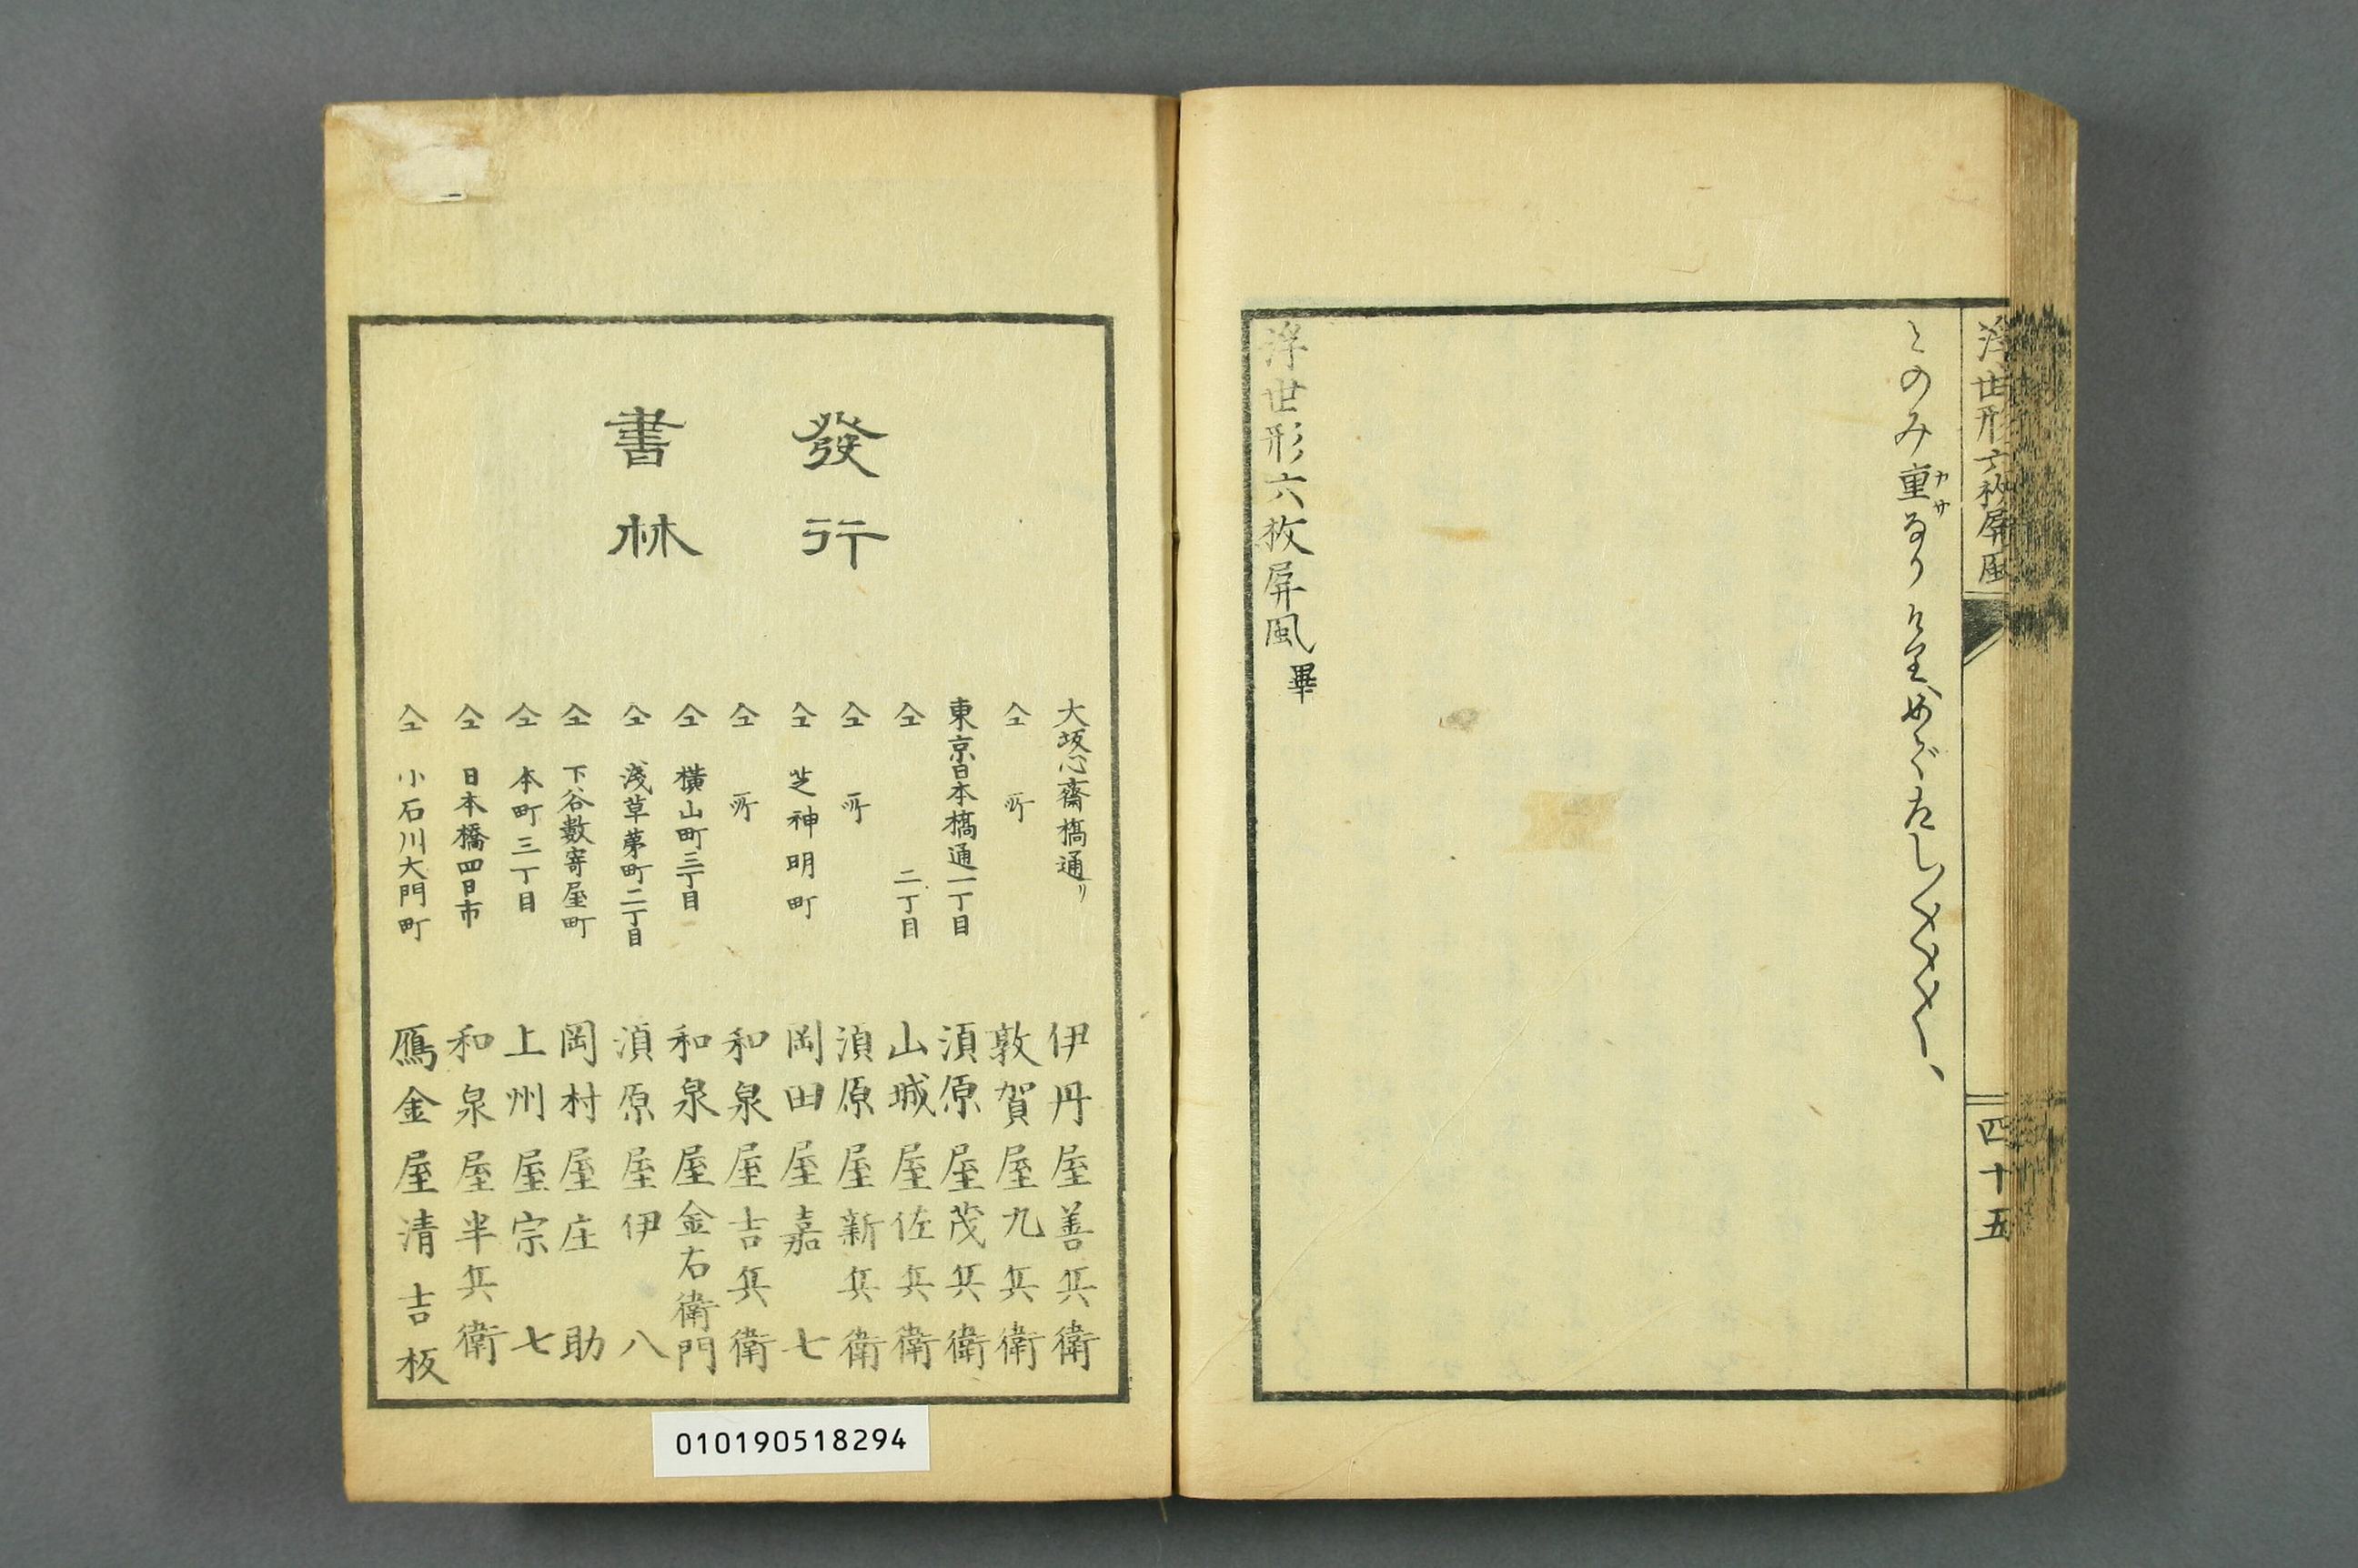 浮世形六枚屏風
四十五
のみ重なりけりめでたし〳〵〳〵〳〵
カサ
浮世形六枚屏風畢
發行
書林
大坂心齋橋通リ 伊丹屋善兵衛
仝 所 敦賀屋九兵衛
東京日本橋通一丁目 須原屋茂兵衛
仝 二丁目 山城屋佐兵衛
仝 所 須原屋新兵衛
仝 芝神明町 岡田屋嘉七
仝 所 和泉屋吉兵衛
仝 橫山町三丁目 和泉屋金右衛門
仝 淺草茅町二丁目 須原屋伊八
仝 下谷數寄屋町 岡村屋庄助
仝 本町三丁目 上州屋宗七
仝 日本橋四日市 和泉屋半兵衛
仝 小石川大門町 鴈金屋清吉板
010190518294